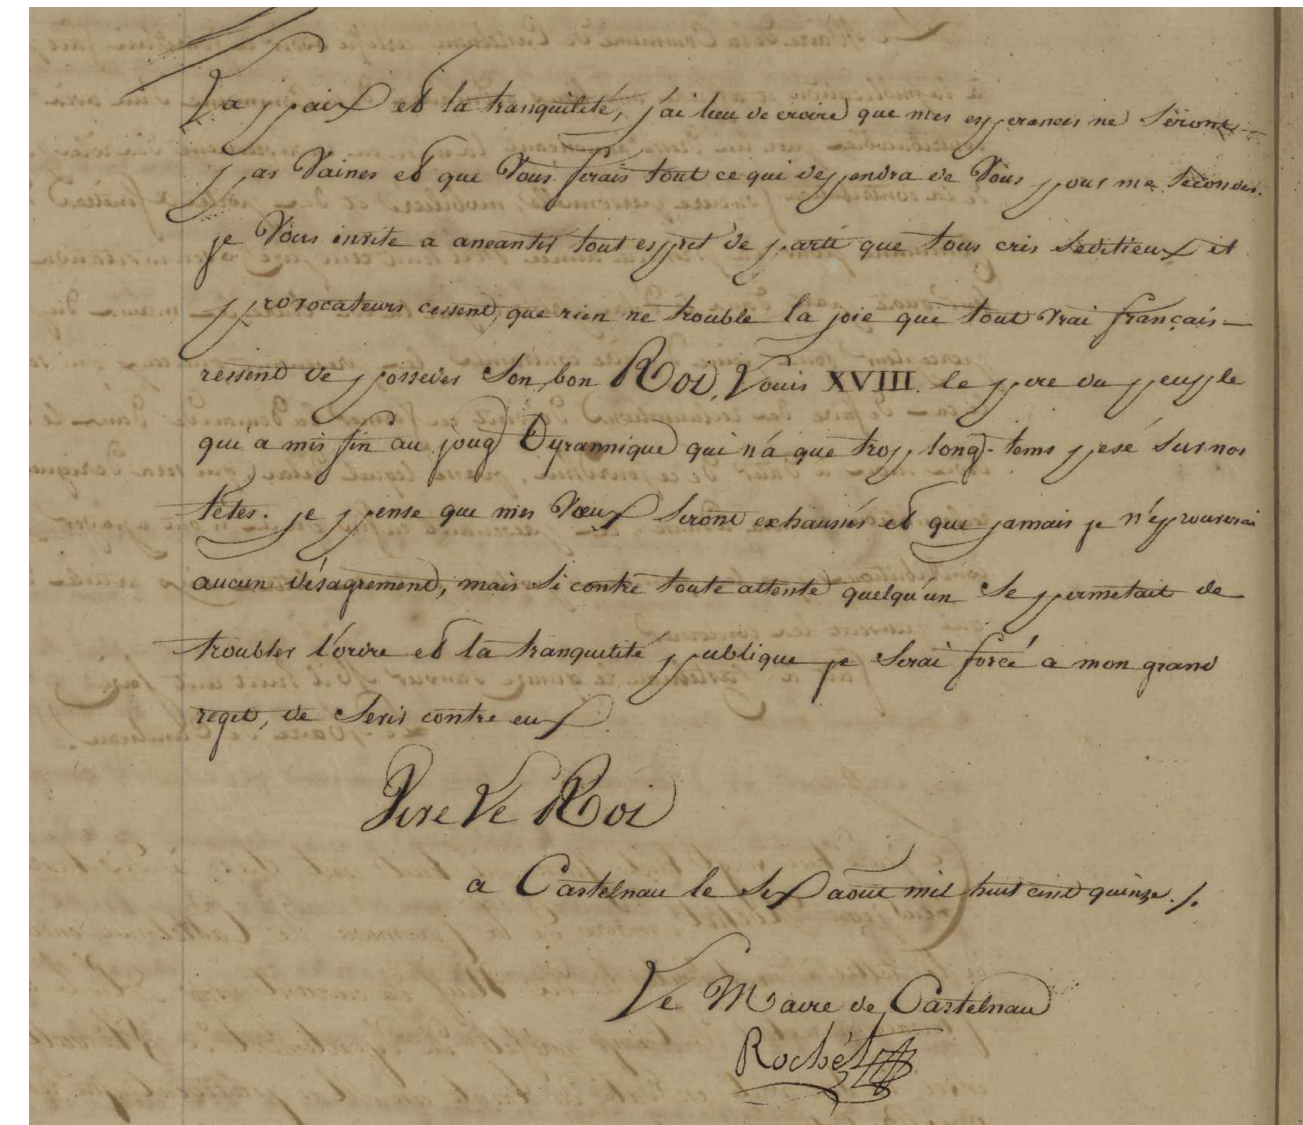 La paix et la tranquilité, j'ai lieu de croire que mes esperances ne Seront
pas Vaines et que Vous ferais tout ce qui dependra de Vous pour me Seconder.
je Vous invite a aneantir tout espret de parti que tous cris Seditieux et
provocateurs cessent, que rien ne trouble la joie que tout Vrai français
ressent de posseder Son bon Roi, Louis XVIII. le pere du peuple
qui a mis fin au joug Tyrannique qui n'á que trop long-tems pesé Sur nos
têtes. je pense que mes Vœux Seront exhaussés et que jamais je n'éprouverai
aucun désagrement, mais Si contre toute attente quelqu'un Se permetait de
troubler l'ordre et la tranquilité publique je Serai forcé a mon grand
reget, de Sevir contre eux
Vive Le Roi
a Castelnau le Six aout mil huit cent quinze ./.
Le Maire de Castelnau
Roché